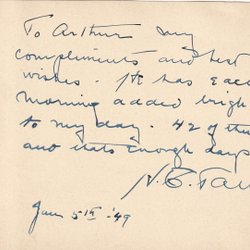 To Arthur my
compliments and best
wishes. It has each
morning added brigh
to my day. 42 of the
and thats enough days
Jan 5th '49